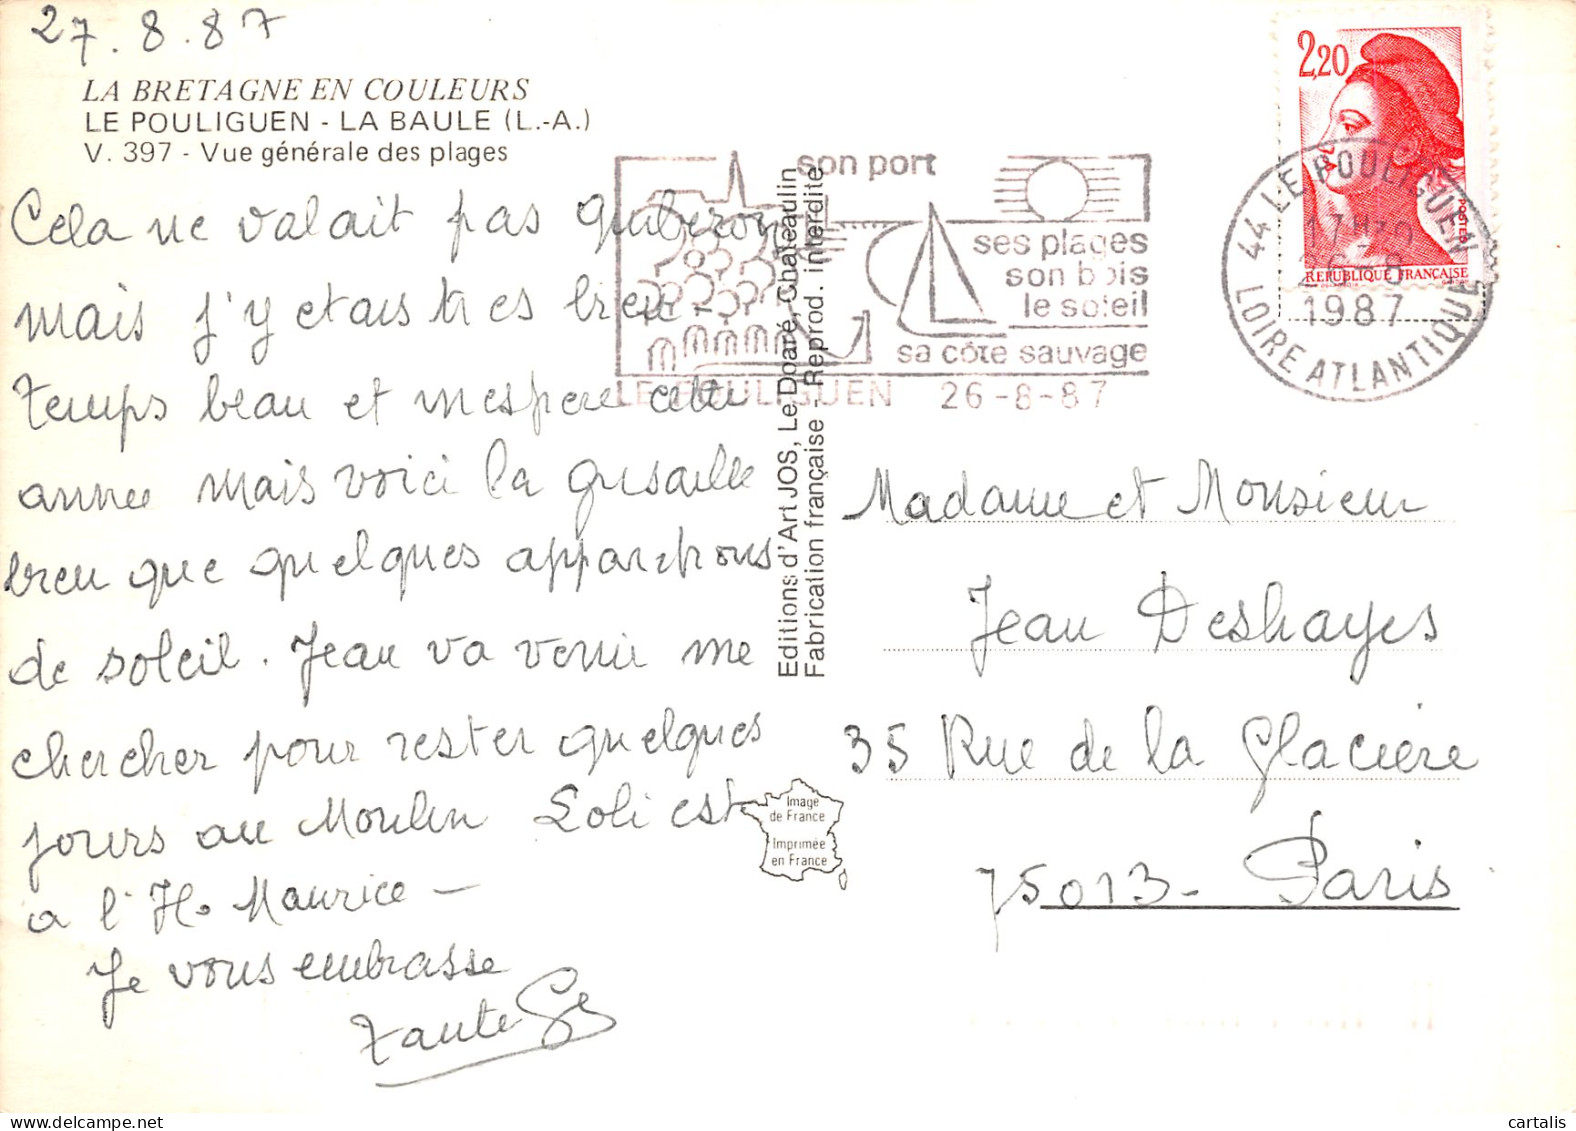 27.8.87
LA BRETAGNE EN COULEURS
LE POULIGUEN - LA BAULE (L.-A.)
V. 397 - Vue générale des plages
Cela ne valait pas quiberon
mais j'y etais tres bien -
Temps beau et inespere cette
annee mais voici la grisaille
bien que quelques apparitions
de soleil. Jean va venir me
chercher pour rester quelques
jours au Moulin Loli est
a l'H. Maurice -
Je vous embrasse
Tante
Editions d'Art JOS, Le Doaré, Chateaulin
Fabrication française - Reprod. interdite
son port
ses plages
son bois
le soleil
sa côte sauvage
LE POULIGUEN 26-8-87
2,20
POSTES
REPUBLIQUE FRANÇAISE
44 LE POULIGUEN
17H30
26-8
1987
LOIRE ATLANTIQUE
Madame et Monsieur
Jean Deshayes
35 Rue de la Glaciere
75013 - Paris
Image
de France
Imprimée
en France
cartalis